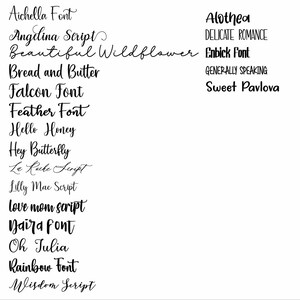 Aichella Font
Angelina Script
Beautiful Wildflower
Bread and Butter
Falcon Font
Feather Font
Hello Honey
Hey Butterfly
La Riche Script
Lilly Mae Script
love mom script
Daira Font
Oh Tulia
Rainbow Font
Wisdom Script
Alothea
DELICATE ROMANCE
Enbick Font
GENERALLY SPEAKING
Sweet Pavlova